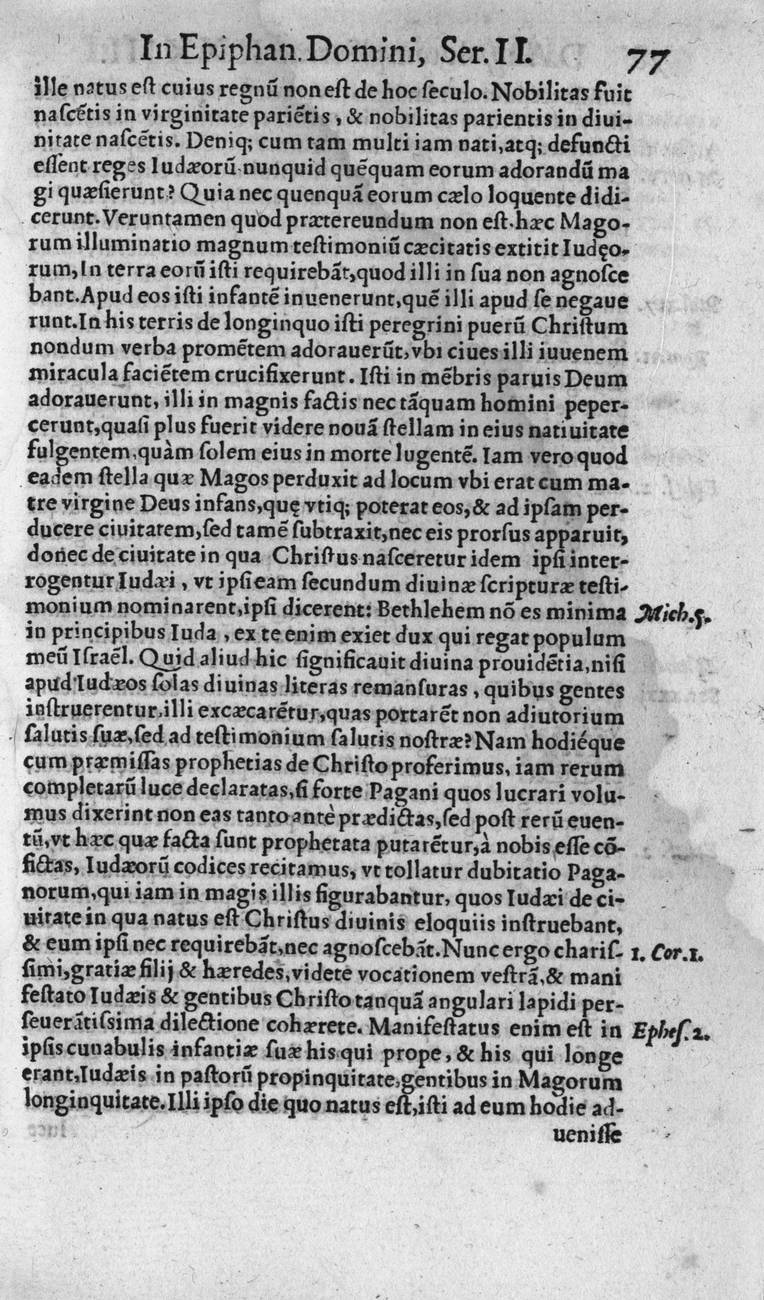 In Epiphan. Domini, Ser. II. 77
ille natus eſt cuius regnũ non eſt de hoc ſeculo. Nobilitas fuit
naſcẽtis in virginitate pariẽtis, & nobilitas parientis in diui-
nitate naſcẽtis. Deniq; cum tam multi iam nati, atq; defuncti
eſſent reges Iudæorũ nunquid quẽquam eorum adorandũ ma
gi quæſierunt? Quia nec quenquã eorum cælo loquente didi-
cerunt. Veruntamen quod prætereundum non eſt. hæc Mago-
rum illuminatio magnum teſtimoniũ cæcitatis extitit Iudęo-
rum, In terra eorũ iſti requirebãt, quod illi in ſua non agnoſce
bant. Apud eos iſti infantẽ inuenerunt, quẽ illi apud ſe negaue
runt. In his terris de longinquo iſti peregrini puerũ Chriſtum
nondum verba promẽtem adorauerũt, vbi ciues illi iuuenem
miracula faciẽtem crucifixerunt. Iſti in mẽbris paruis Deum
adorauerunt, illi in magnis factis nec tãquam homini peper-
cerunt, quaſi plus fuerit videre nouã ſtellam in eius natiuitate
fulgentem, quàm ſolem eius in morte lugentẽ. Iam vero quod
eadem ſtella quæ Magos perduxit ad locum vbi erat cum ma-
tre virgine Deus infans, quę vtiq; poterat eos, & ad ipſam per-
ducere ciuitatem, ſed tamẽ ſubtraxit, nec eis prorſus apparuit,
donec de ciuitate in qua Chriſtus naſceretur idem ipſi inter-
rogentur Iudæi, vt ipſi eam ſecundum diuinæ ſcripturæ teſti-
monium nominarent, ipſi dicerent: Bethlehem nõ es minima Mich. 5.
in principibus Iuda, ex te enim exiet dux qui regat populum
meũ Iſraël. Quid aliud hic ſignificauit diuina prouidẽtia, niſi
apud Iudæos ſolas diuinas literas remanſuras, quibus gentes
inſtruerentur, illi excæcarẽtur, quas portarẽt non adiutorium
ſalutis ſuæ, ſed ad teſtimonium ſalutis noſtræ? Nam hodiéque
cum præmiſſas prophetias de Chriſto proferimus, iam rerum
completarũ luce declaratas, ſi forte Pagani quos lucrari volu-
mus dixerint non eas tanto antè prædictas, ſed poſt rerũ euen-
tũ, vt hæc quæ facta ſunt prophetata putarẽtur, à nobis eſſe cõ-
fictas, Iudæorũ codices recitamus, vt tollatur dubitatio Paga-
norum, qui iam in magis illis figurabantur, quos Iudæi de ci-
uitate in qua natus eſt Chriſtus diuinis eloquiis inſtruebant,
& eum ipſi nec requirebãt, nec agnoſcebãt. Nunc ergo chariſ- 1. Cor. 1.
ſimi, gratiæ filij & hæredes, videte vocationem veſtrã, & mani
feſtato Iudæis & gentibus Chriſto tanquã angulari lapidi per-
ſeuerãtiſſima dilectione cohærete. Manifeſtatus enim eſt in Epheſ. 2.
ipſis cunabulis infantiæ ſuæ his qui prope, & his qui longe
erant, Iudæis in paſtorũ propinquitate, gentibus in Magorum
longinquitate. Illi ipſo die quo natus eſt, iſti ad eum hodie ad-
ueniſſe